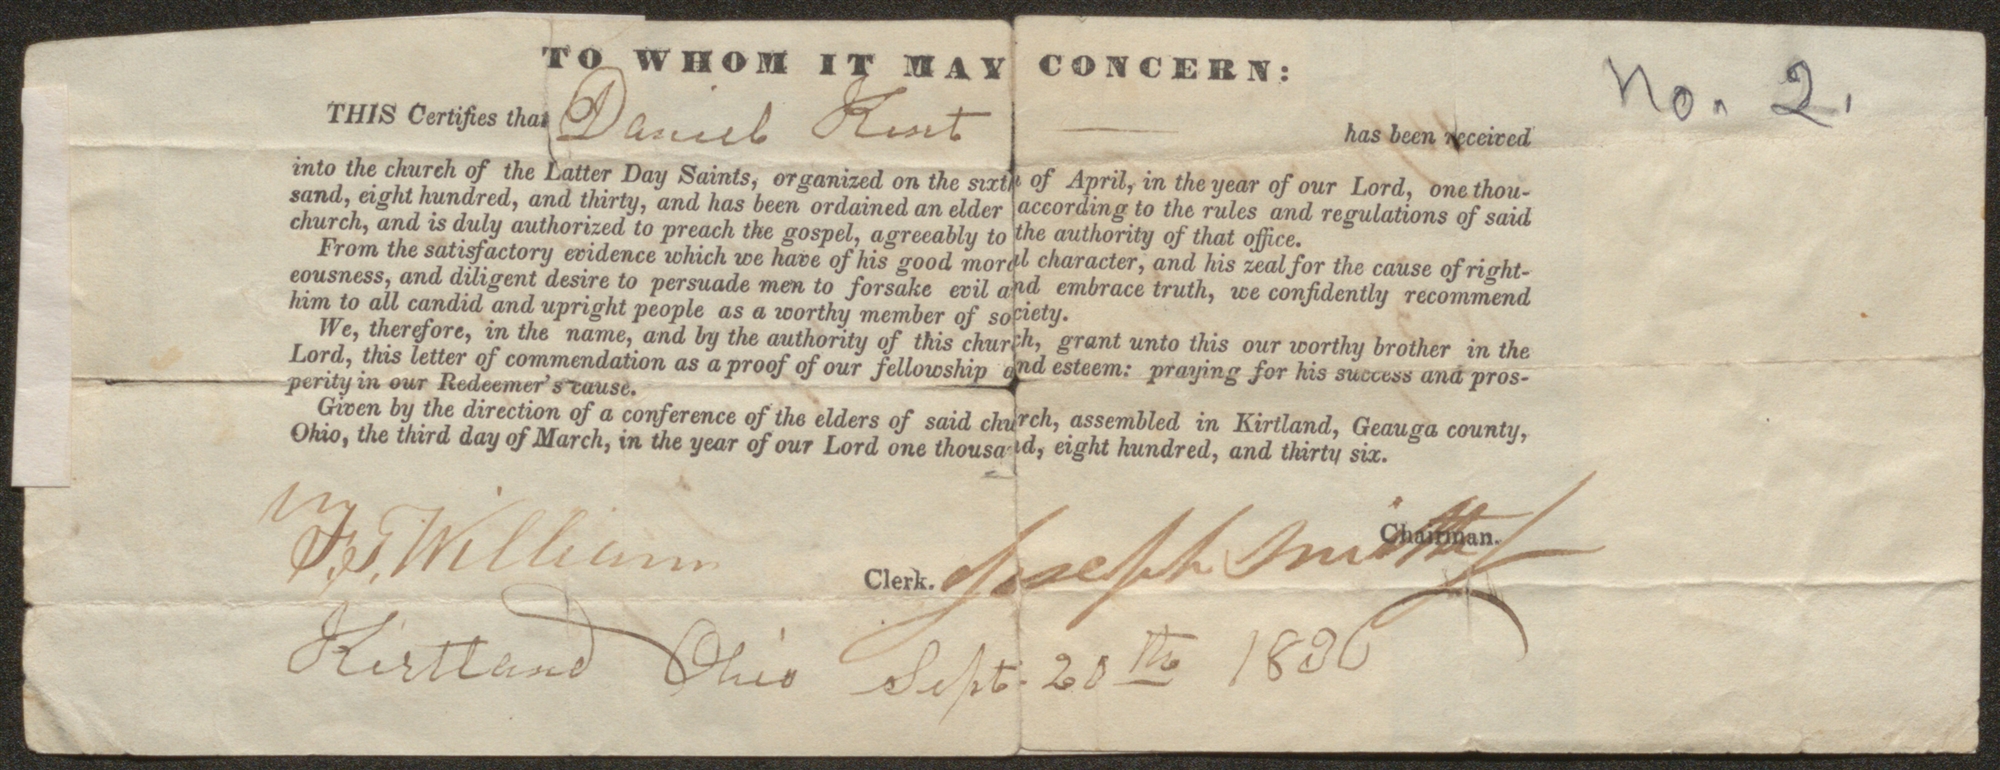 TO WHOM IT MAY CONCERN:
No. 2.
THIS Certifies that Daniel Kent — has been received
into the church of the Latter Day Saints, organized on the sixth of April, in the year of our Lord, one thou-
sand, eight hundred, and thirty, and has been ordained an elder according to the rules and regulations of said
church, and is duly authorized to preach the gospel, agreeably to the authority of that office.
From the satisfactory evidence which we have of his good moral character, and his zeal for the cause of right-
eousness, and diligent desire to persuade men to forsake evil and embrace truth, we confidently recommend
him to all candid and upright people as a worthy member of society.
We, therefore, in the name, and by the authority of this church, grant unto this our worthy brother in the
Lord, this letter of commendation as a proof of our fellowship and esteem: praying for his success and pros-
perity in our Redeemer's cause.
Given by the direction of a conference of the elders of said church, assembled in Kirtland, Geauga county,
Ohio, the third day of March, in the year of our Lord one thousand, eight hundred, and thirty six.
Joseph Smith Chairman.
F. G. Williams Clerk.
Kirtland Ohio Sept. 20th 1836